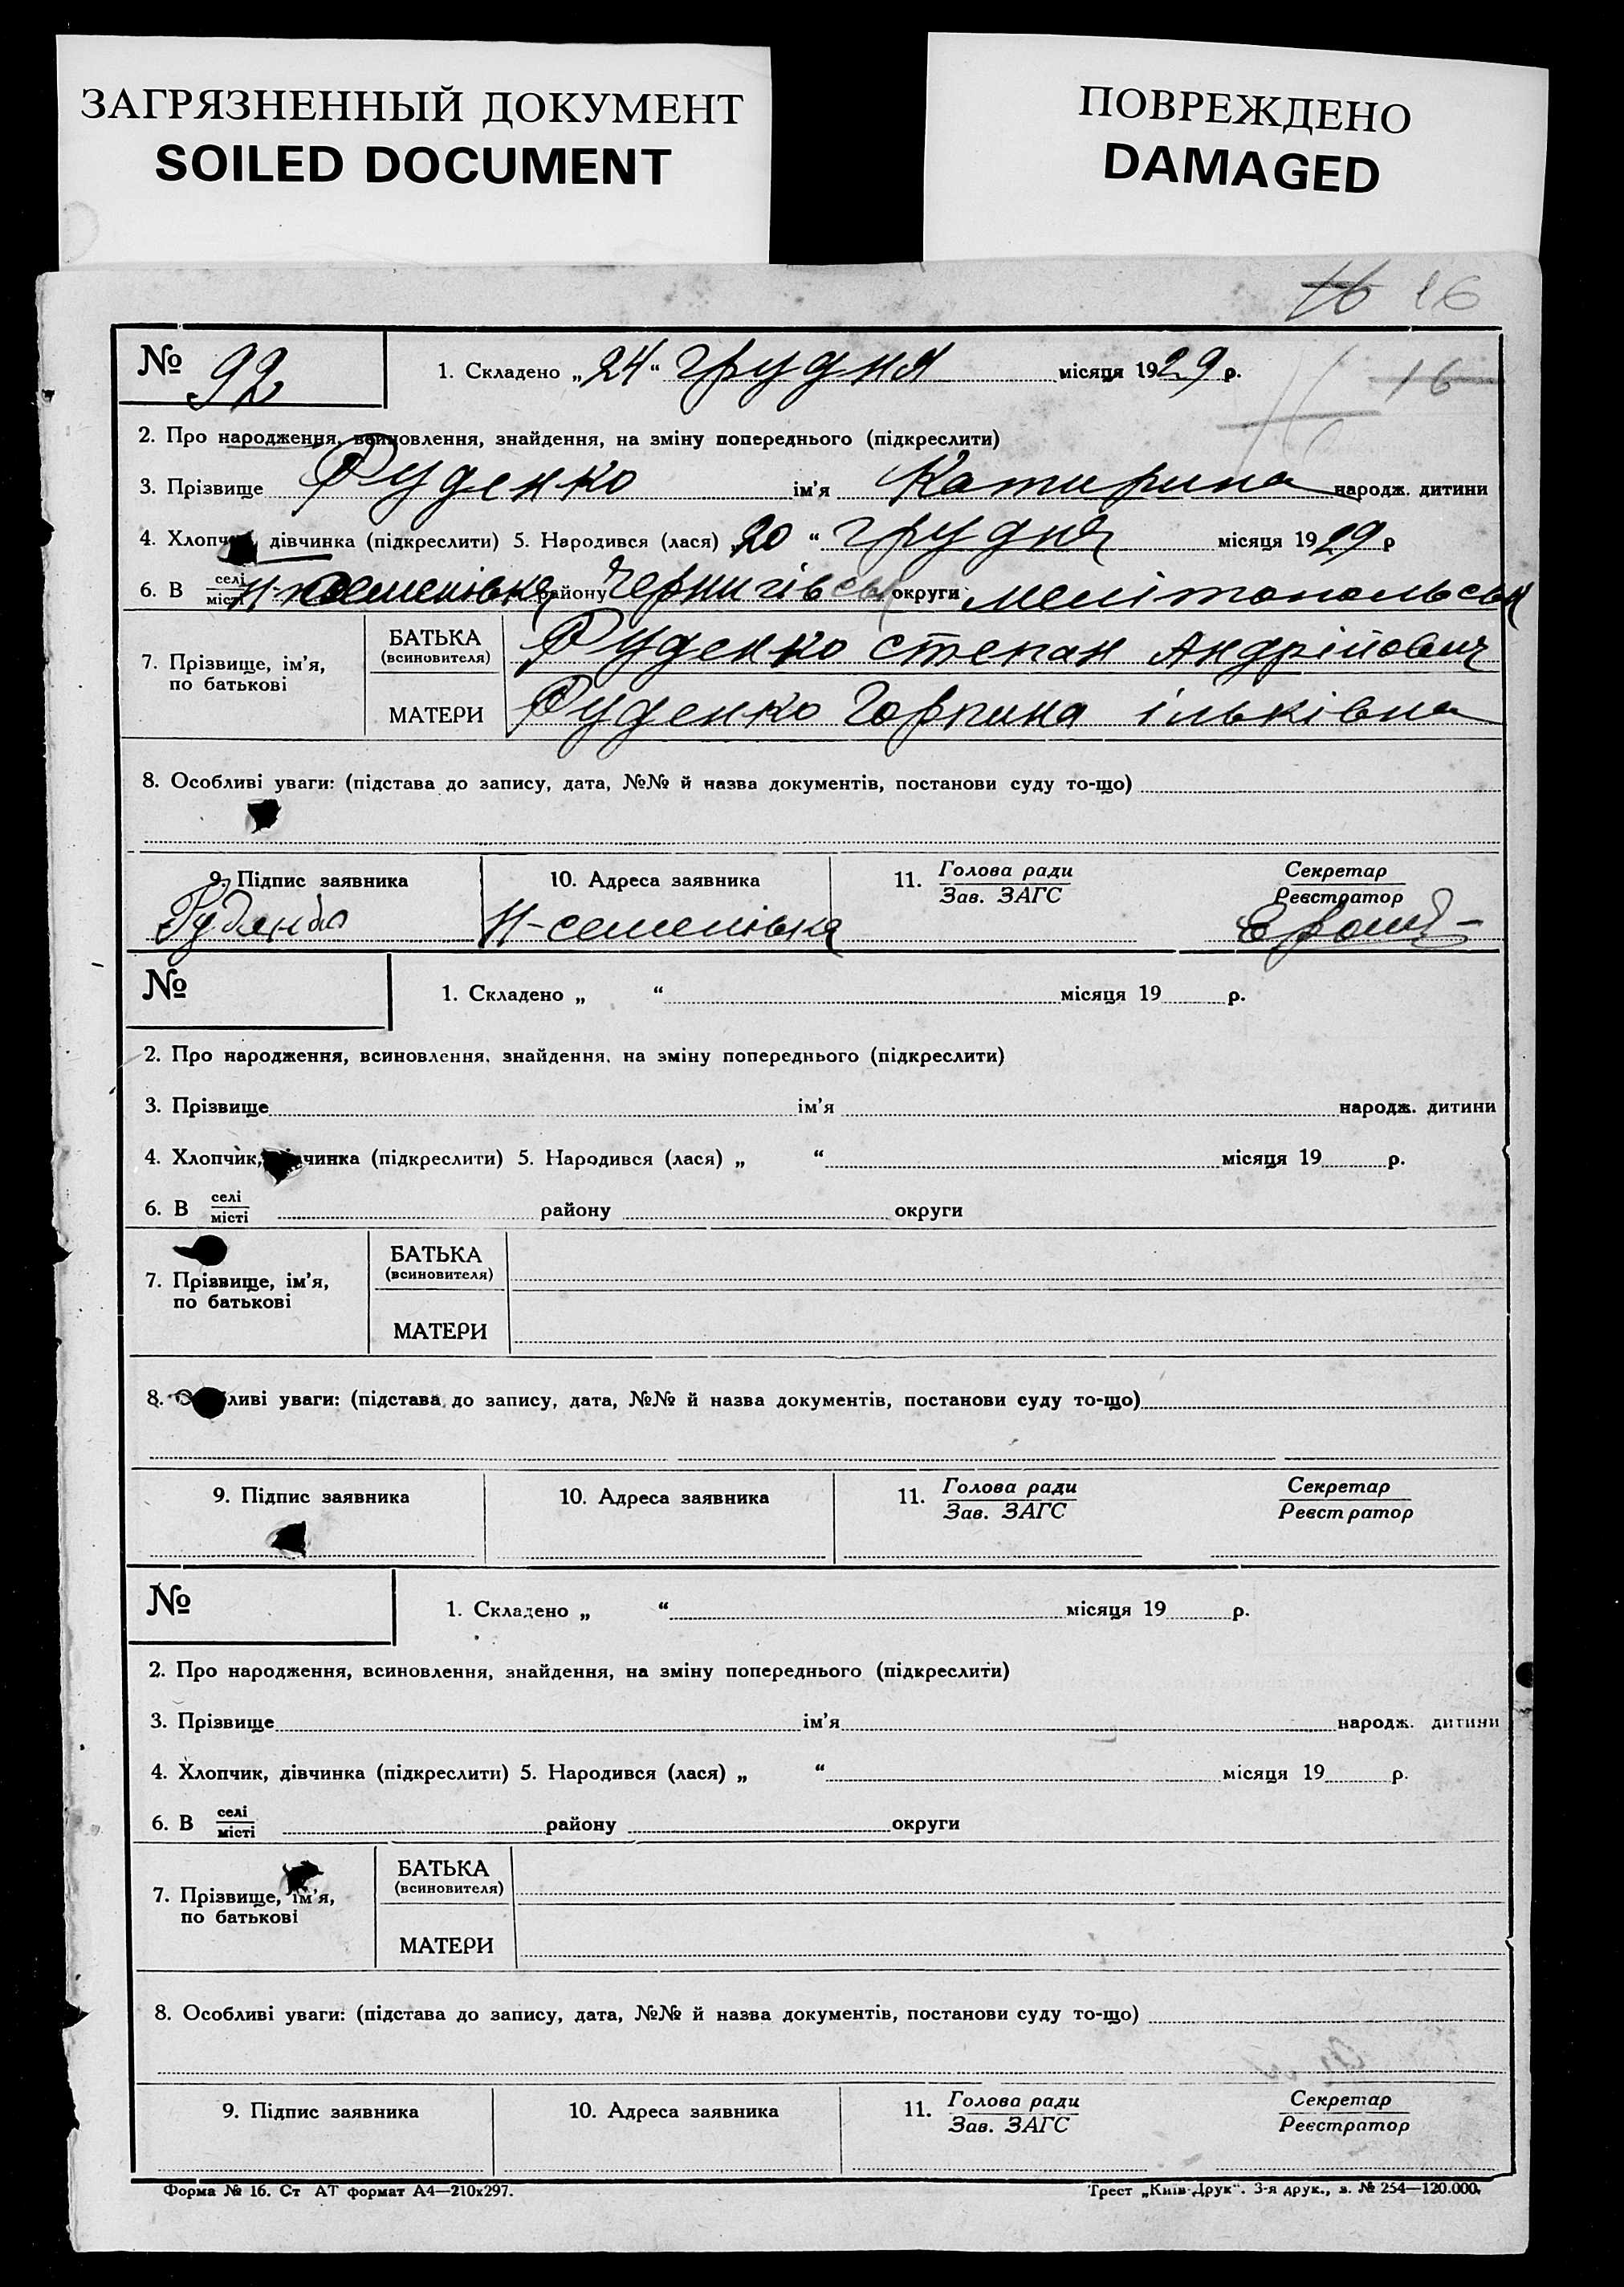 ЗАГРЯЗНЕННЫЙ ДОКУМЕНТ
SOILED DOCUMENT
ПОВРЕЖДЕНО
DAMAGED
16 16
16
№ 92
1. Складено „24“ грудня місяця 1929 р.
2. Про народження, всиновлення, знайдення, на зміну попереднього (підкреслити)
3. Прізвище Руденко ім'я Катирина народж. дитини
4. Хлопчик, дівчинка (підкреслити) 5. Народився (лася) „20“ грудня місяця 1929 р
6. В селі/місті Н-Семенівка району Чернигівськ округи Мелітопольськ
7. Прізвище, ім'я, по батькові
БАТЬКА (всиновителя) Руденко Степан Андрійович
МАТЕРИ Руденко Горпина ільківна
8. Особливі уваги: (підстава до запису, дата, №№ й назва документів, постанови суду то-що)
9. Підпис заявника
10. Адреса заявника
11. Голова ради / Зав. ЗАГС
Секретар / Реєстратор
Н-семенівка
№
1. Складено „ “ місяця 19 р.
2. Про народження, всиновлення, знайдення, на зміну попереднього (підкреслити)
3. Прізвище ім'я народж. дитини
4. Хлопчик, дівчинка (підкреслити) 5. Народився (лася) „ “ місяця 19 р.
6. В селі/місті району округи
7. Прізвище, ім'я, по батькові
БАТЬКА (всиновителя)
МАТЕРИ
8. Особливі уваги: (підстава до запису, дата, №№ й назва документів, постанови суду то-що)
9. Підпис заявника
10. Адреса заявника
11. Голова ради / Зав. ЗАГС
Секретар / Реєстратор
№
1. Складено „ “ місяця 19 р.
2. Про народження, всиновлення, знайдення, на зміну попереднього (підкреслити)
3. Прізвище ім'я народж. дитини
4. Хлопчик, дівчинка (підкреслити) 5. Народився (лася) „ “ місяця 19 р.
6. В селі/місті району округи
7. Прізвище, ім'я, по батькові
БАТЬКА (всиновителя)
МАТЕРИ
8. Особливі уваги: (підстава до запису, дата, №№ й назва документів, постанови суду то-що)
9. Підпис заявника
10. Адреса заявника
11. Голова ради / Зав. ЗАГС
Секретар / Реєстратор
Форма № 16. Ст АТ формат А4—210х297.
Трест „Київ-Друк“. 3-я друк., з. № 254—120.000.